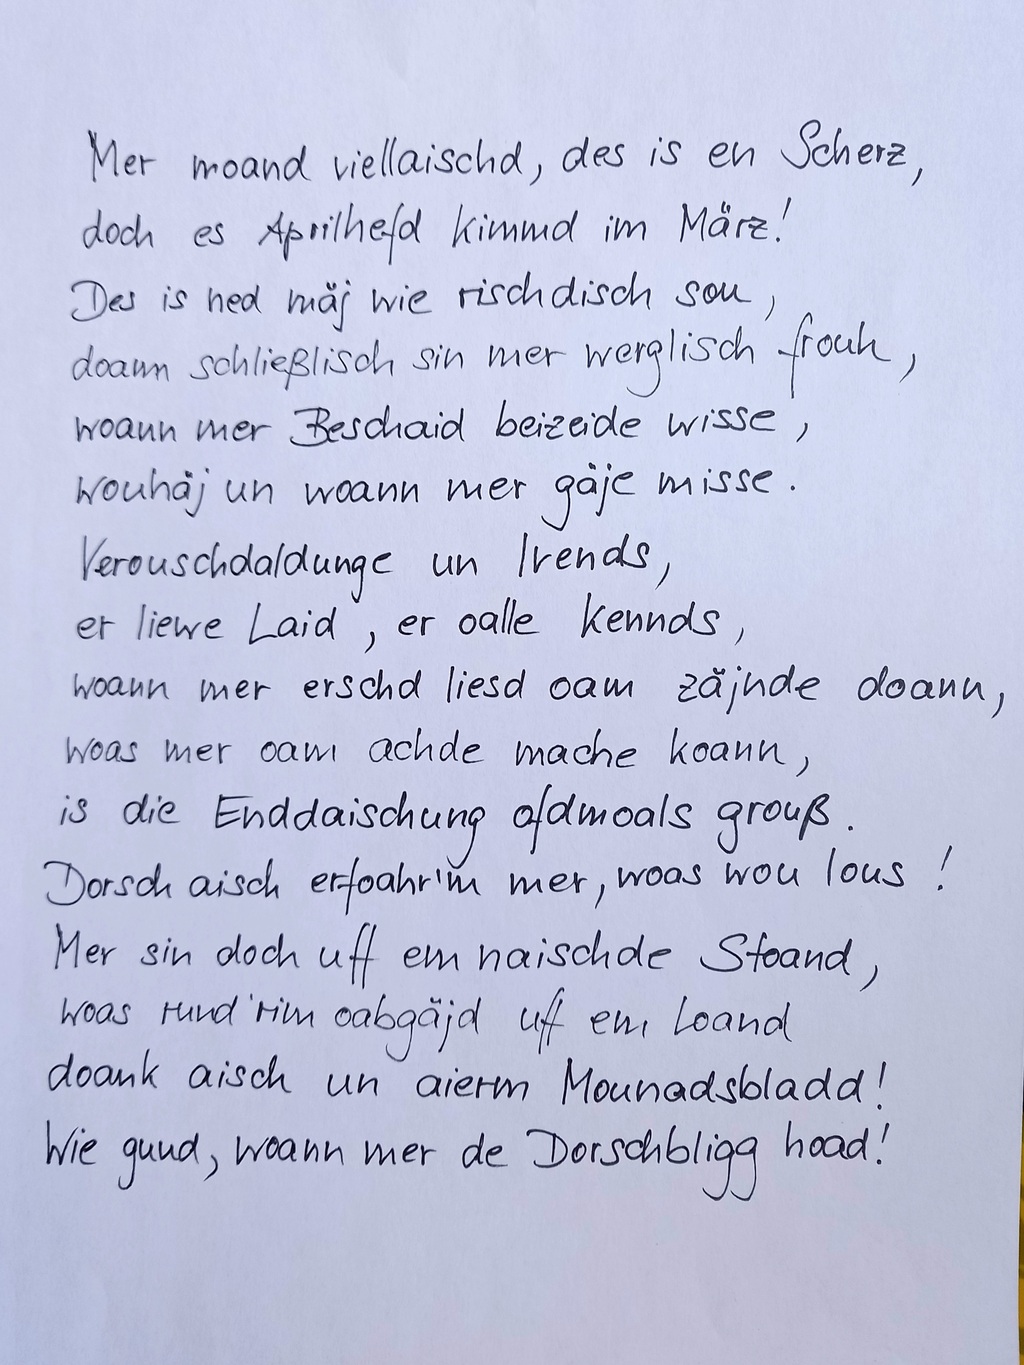 Mer moand viellaischd, des is en Scherz,
doch es Aprilhefd kimmd im März!
Des is ned mäj wie rischdisch sou,
doann schließlisch sin mer werglisch frouh,
woann mer Beschaid beizeide wisse,
wouhäj un woann mer gäje misse.
Verouschdaldunge un Ivends,
er liewe Laid, er oalle kennds,
woann mer erschd liesd oam zäjnde doann,
woas mer oam achde mache koann,
is die Enddaischung ofdmoals grouß.
Dorsch aisch erfoahr'm mer, woas wou lous!
Mer sin doch uff em naischde Stoand,
woas rund'rim oabgäjd uff em Loand
doank aisch un aierm Mounadsbladd!
Wie guud, woann mer de Dorschbligg hoad!